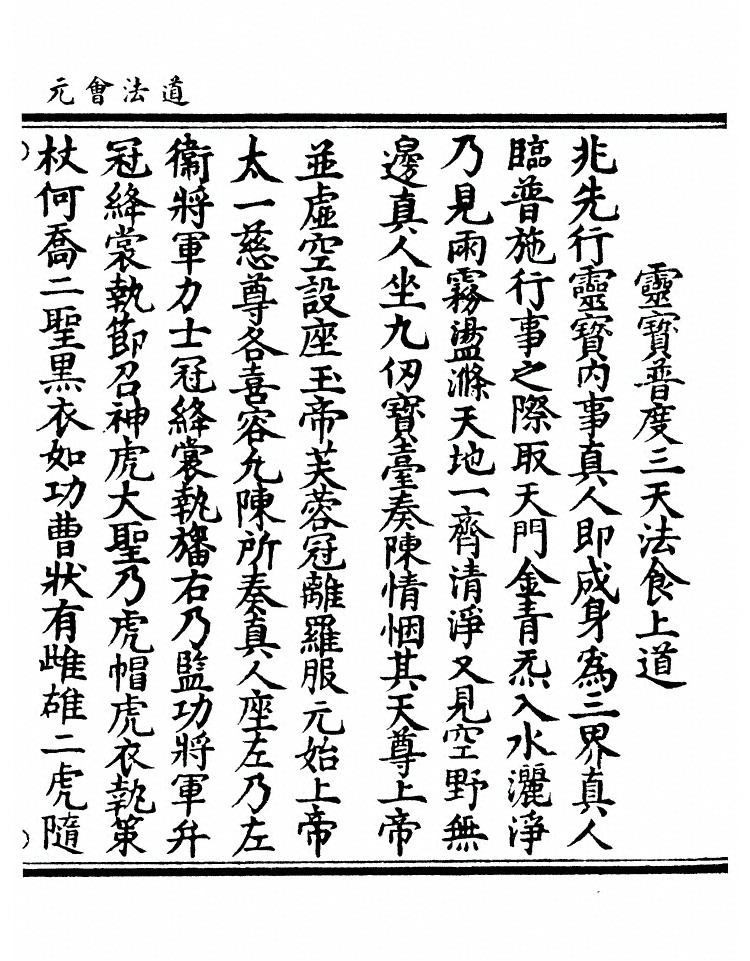 道法會元
靈寶普度三天法食上道
兆先行靈寶內事真人即成身為三界真人
臨普施行事之際取天門金青炁入水灑淨
乃見雨霧盪滌天地一齊清淨又見空野無
邊真人坐九仞寶臺奏陳情悃其天尊上帝
並虛空設座玉帝芙蓉冠離羅服元始上帝
太一慈尊各喜容允陳所奏真人座左乃左
衞將軍力士冠絳裳執旛右乃監功將軍弁
冠絳裳執節召神虎大聖乃虎帽虎衣執策
杖何喬二聖黑衣如功曹狀有雌雄二虎隨